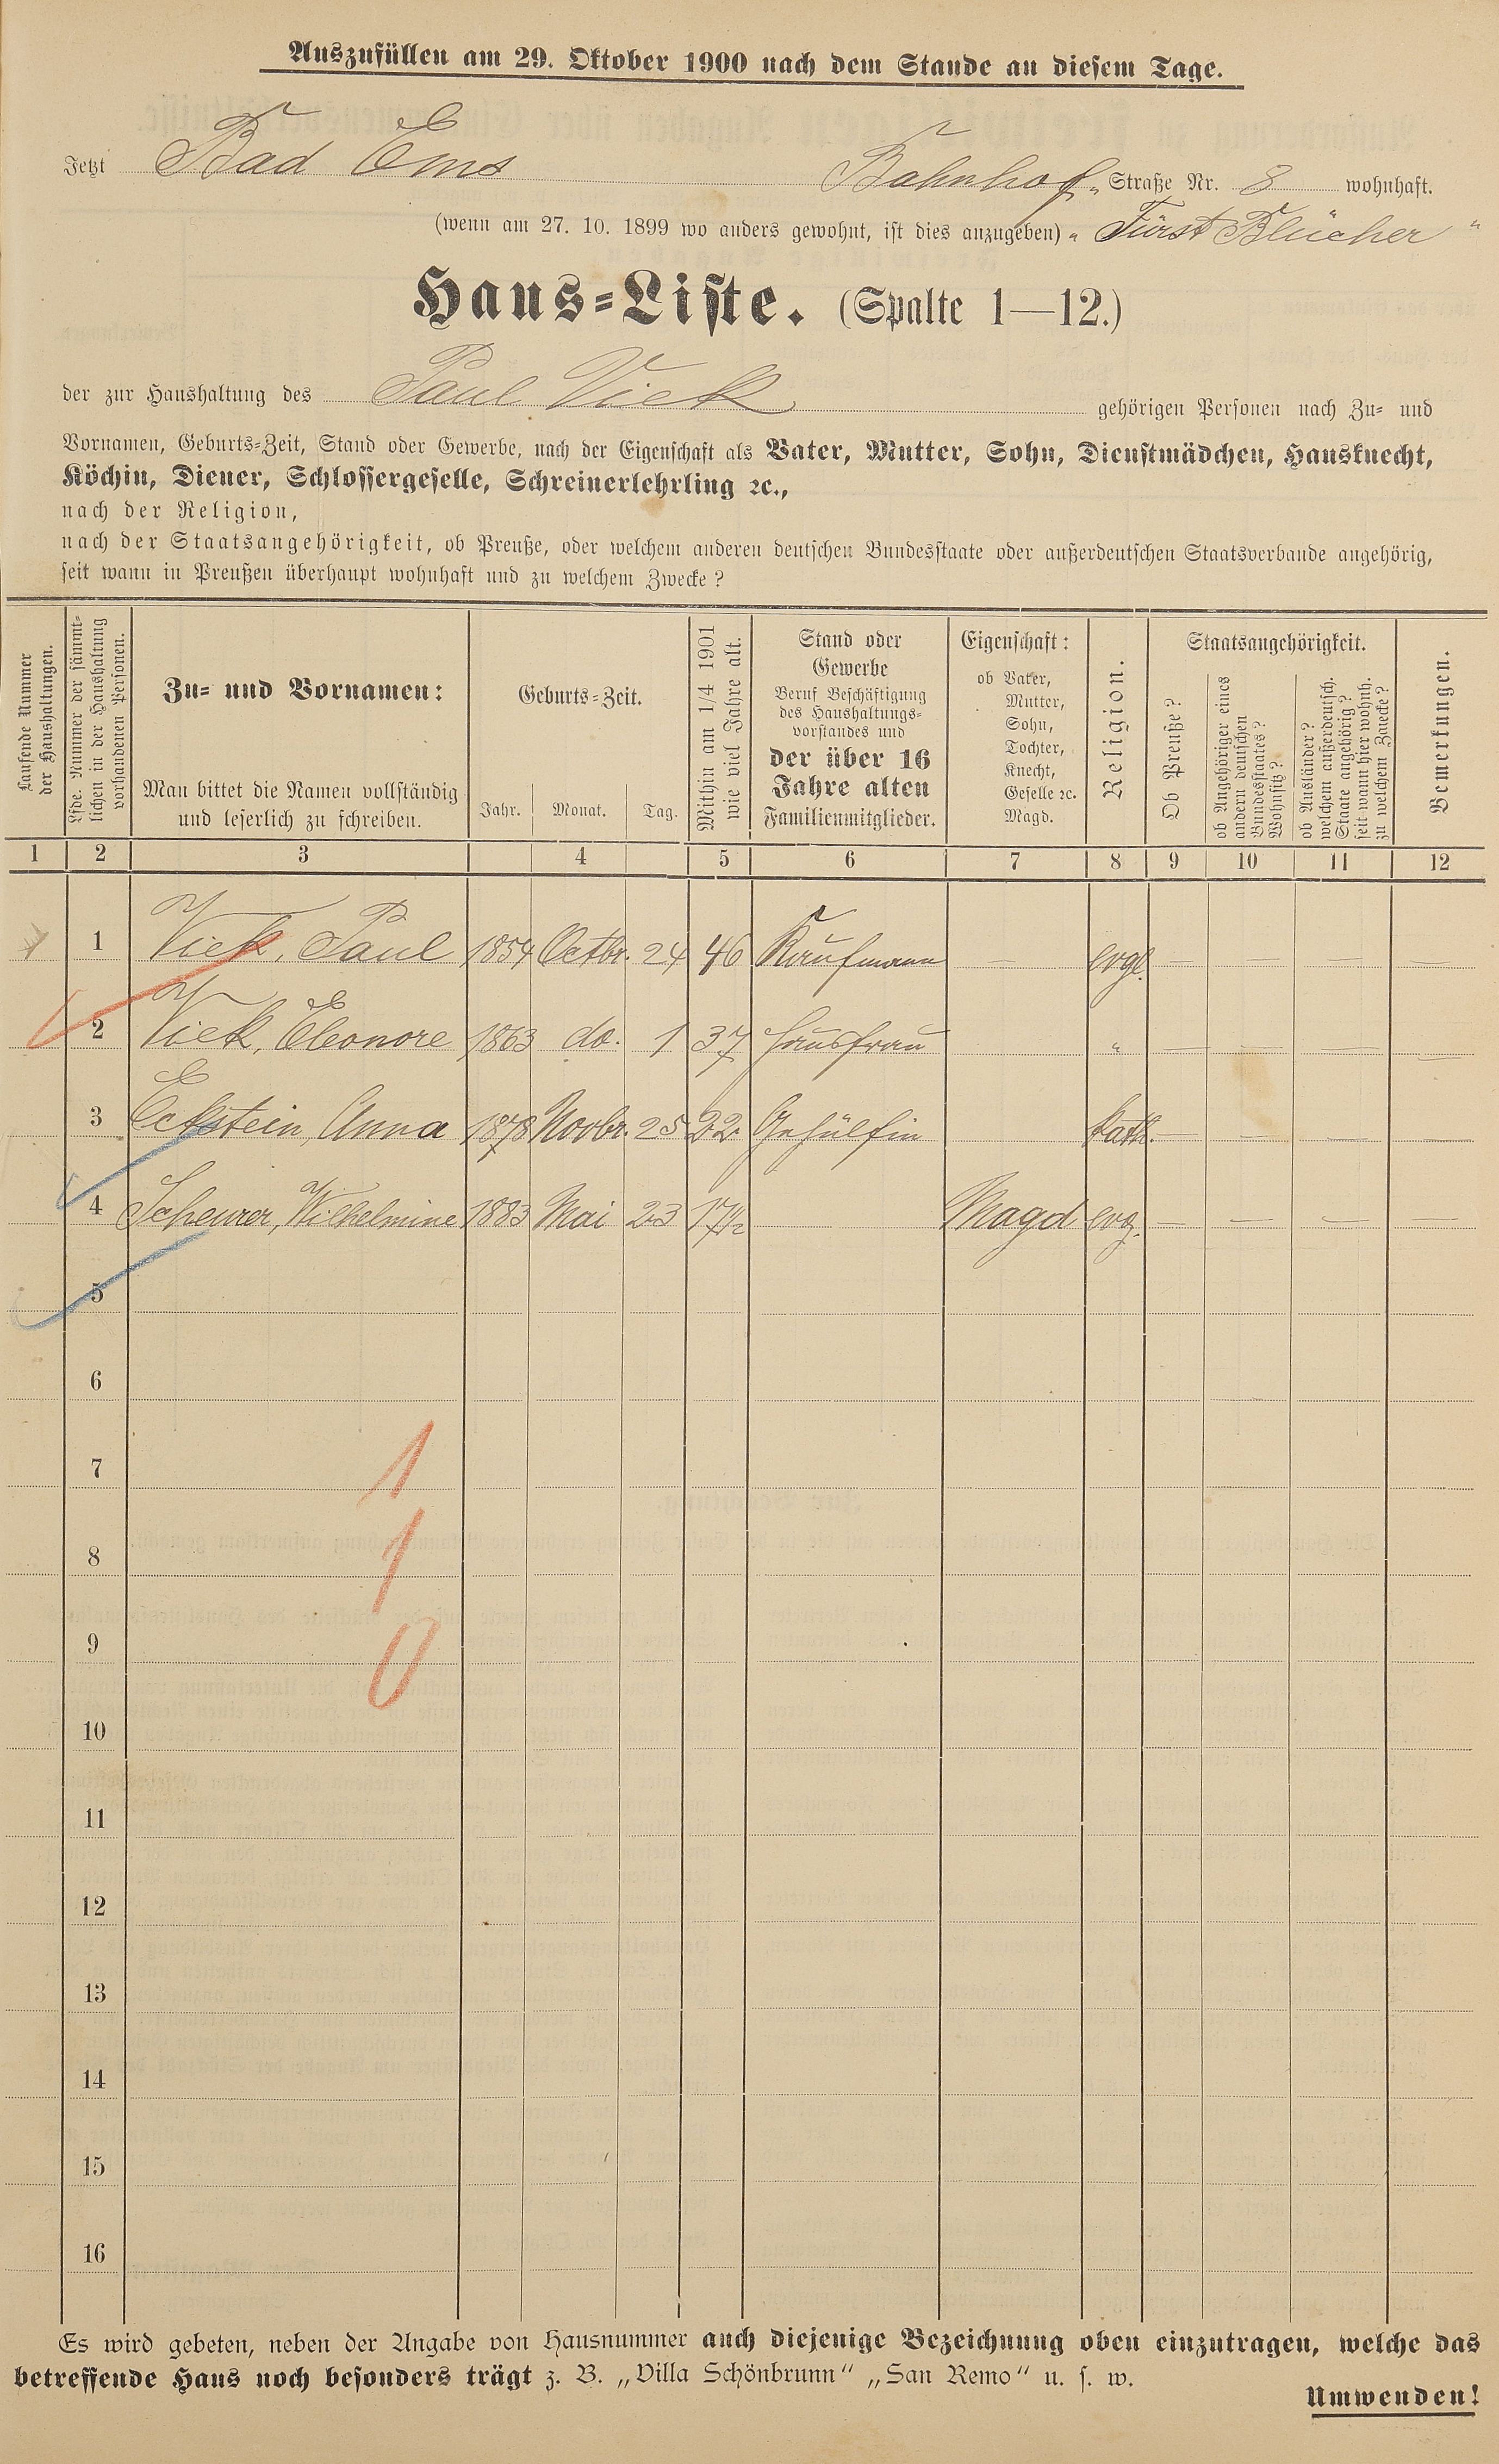 Auszufüllen am 29. Oktober 1900 nach dem Stande an diesem Tage.
Jetzt Bad Ems Bahnhof-Straße Nr. 8 wohnhaft.
(wenn am 27. 10. 1899 wo anders gewohnt, ist dies anzugeben) „Fürst Blücher"
Haus-Liste. (Spalte 1—12.)
der zur Haushaltung des Paul Viek gehörigen Personen nach Zu- und
Vornamen, Geburts-Zeit, Stand oder Gewerbe, nach der Eigenschaft als Vater, Mutter, Sohn, Dienstmädchen, Hausknecht,
Köchin, Diener, Schlossergeselle, Schreinerlehrling ꝛc.,
nach der Religion,
nach der Staatsangehörigkeit, ob Preuße, oder welchem anderen deutschen Bundesstaate oder außerdeutschen Staatsverbande angehörig,
seit wann in Preußen überhaupt wohnhaft und zu welchem Zwecke?
Laufende Nummer
der Haushaltungen.
Lfde. Nummer der sämmt-
lichen in der Haushaltung
vorhandenen Personen.
Zu- und Vornamen:
Man bittet die Namen vollständig
und leserlich zu schreiben.
Geburts-Zeit.
Jahr. Monat. Tag.
Mithin am 1/4 1901
wie viel Jahre alt.
Stand oder
Gewerbe
Beruf Beschäftigung
des Haushaltungs-
vorstandes und
der über 16
Jahre alten
Familienmitglieder.
Eigenschaft:
ob Vater,
Mutter,
Sohn,
Tochter,
Knecht,
Geselle ꝛc.
Magd.
Religion.
Staatsangehörigkeit.
Ob Preuße?
ob Angehöriger eines
andern deutschen
Bundesstaates?
Wohnsitz?
ob Ausländer?
welchem außerdeutsch.
Staate angehörig?
seit wann hier wohnh.
zu welchem Zwecke?
Bemerkungen.
1 2 3 4 5 6 7 8 9 10 11 12
1 Viek, Paul 1854 Octbr. 24 46 Kaufmann — evgl. — — — —
2 Viek, Eleonore 1863 do. 1 37 Hausfrau " — — — —
3 Eckstein, Anna 1878 Novbr. 25 22 Gehülfin kath. — — — —
4 Scheurer, Wilhelmine 1883 Mai 23 17½ — Magd evg. — — — —
5
6
7 1
8 1
9 0
10
11
12
13
14
15
16
Es wird gebeten, neben der Angabe von Hausnummer auch diejenige Bezeichnung oben einzutragen, welche das
betreffende Haus noch besonders trägt z. B. „Villa Schönbrunn" „San Remo" u. s. w.
Umwenden!